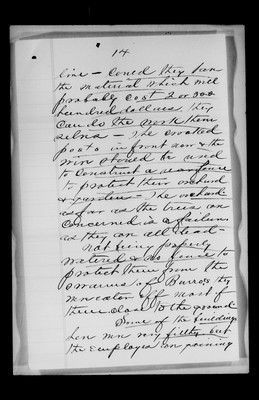 14
line — could they have
the material which will
probably cost 2 or 300
hundred dollars they
can do the work them
selves — The crooked
posts in front now & the
wire should be used
to construct a new fence
to protect their orchard
& garden. The orchard
as far as the trees are
concerned is a failure
as they are all dead —
not being properly
watered & no fence to
protect them from the
swarms of Burros they
were eaten off most of
them close to the ground
Some of the buildings
here were very filthy but
the employees are